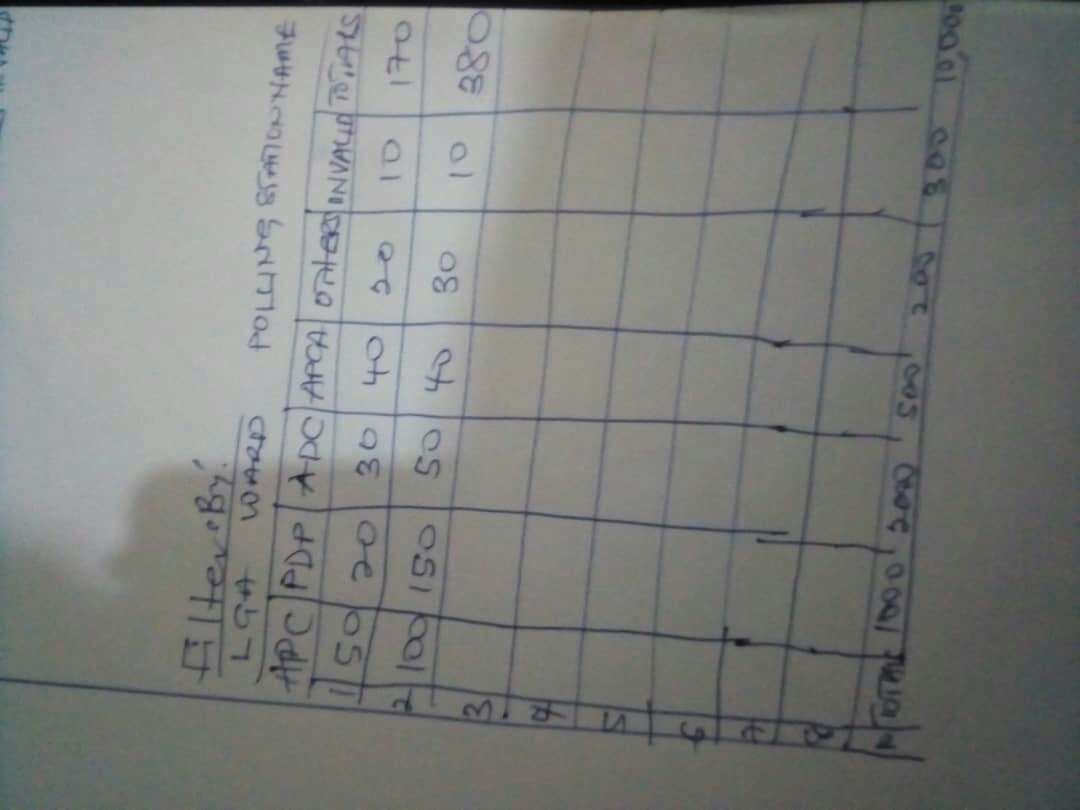 Filter By:
LGA WARD POLLING STATION NAME
APC PDP ADC APGA OTHERS INVALID TOTALS
1 50 20 30 40 20 10 170
2 100 150 50 40 30 10 380
3
4
5
6
7
8
N TOTAL 1000 2000 500 200 300 10,000